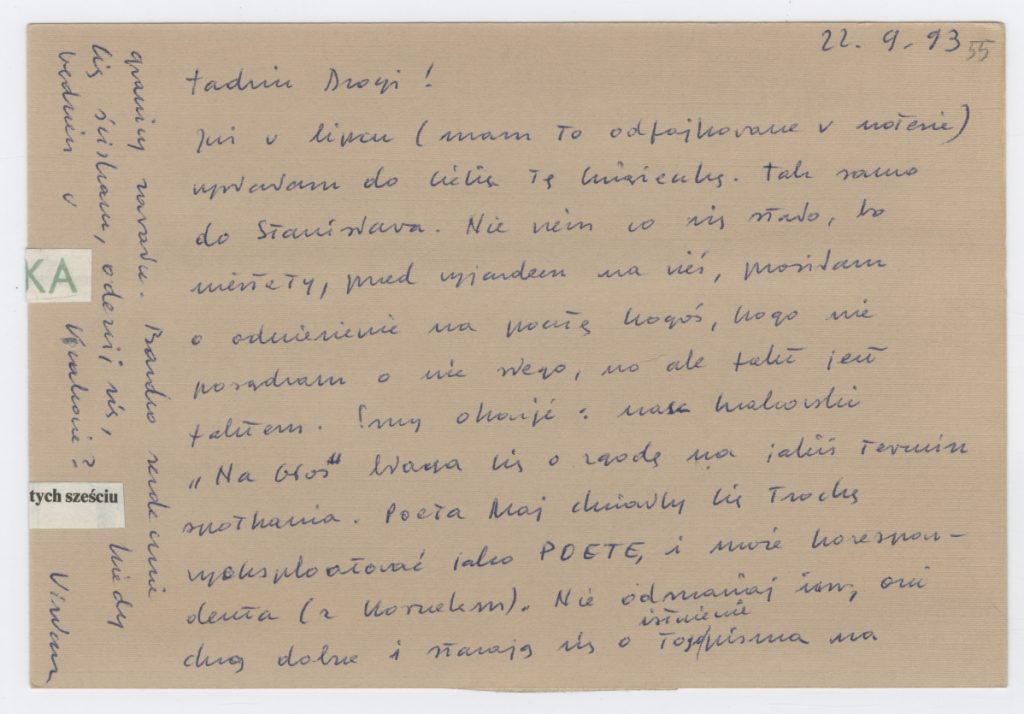 22.9.93 55
Tadziu Drogi!
Już w lipcu (mam to odfajkowane w notesie)
wysłałam do Ciebie tę książeczkę. Tak samo
do Stanisława. Nie wiem co się stało, bo
niestety, przed wyjazdem na wieś, prosiłam
o odniesienie na pocztę kogoś, kogo nie
posądzam o nic złego, no ale fakt jest
faktem. Przy okazji: nasz krakowski
„Na Głos” błaga Cię o zgodę na jakiś termin
spotkania. Poeta Maj chciałby Cię trochę
wyeksploatować jako POETĘ, i może korespon-
denta (z Kornelem). Nie odmawiaj im, oni
istnienie
chcą dobrze i starają się o pisma na
granicy zawału. Bardzo serdecznie
Cię ściskam, odezwij się, kiedy
będziesz w Krakowie? Wisława
KA
tych sześciu